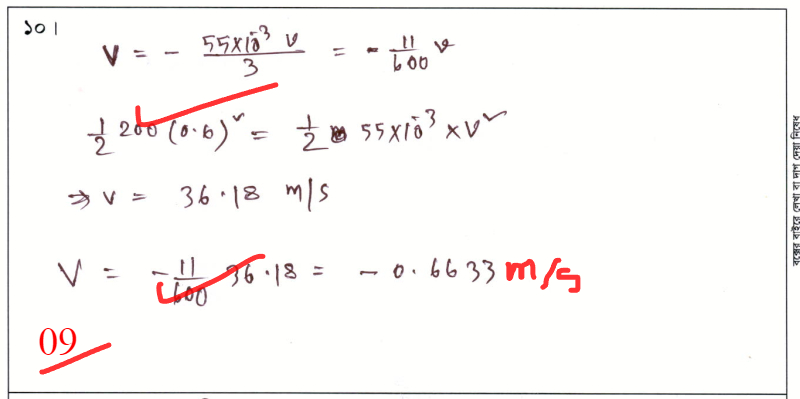 ১০।
V = - 55×10⁻³ v / 3 = - 11/600 v
1/2 200 (0.6)² = 1/2 55×10⁻³ × v²
⇒ v = 36.18 m/s
V = - 11/600 36.18 = - 0.6633 m/s
09
বক্সের বাইরে লেখা বা দাগ দেয়া নিষেধ